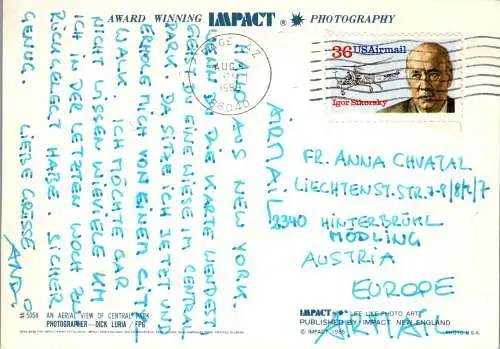 AWARD WINNING IMPACT ® PHOTOGRAPHY
PAGE, AZ
AUG
86040
36 USAirmail
Igor Sikorsky
HALLO AUS NEW YORK.
WENN DU DIE KARTE WENDEST
GEHS EINE WIESE IM CENTRAL
PARK. DA SITZE ICH JETZT UND
ERHOLE MICH VON EINEM CITY
WALK. ICH MÖCHTE GAR
NICHT WISSEN WIEVIELE KM
ICH IN DER LETZTEN WOCH ZU
RÜCKGELEGT HABE. SICHER
GENUG. LIEBE GRÜSSE
AND.
AIRMAIL
FR. ANNA CHVATAL
LIECHTENST. STR. 7-9/8/2/7
2340 HINTERBRÜHL
MÖDLING
AUSTRIA
EUROPE
AIRMAIL
#5054 AN AERIAL VIEW OF CENTRAL PARK
PHOTOGRAPHER—DICK LURIA / FPG
IMPACT LIFE LIKE PHOTO ART
PUBLISHED BY IMPACT NEW ENGLAND
© IMPACT 1986